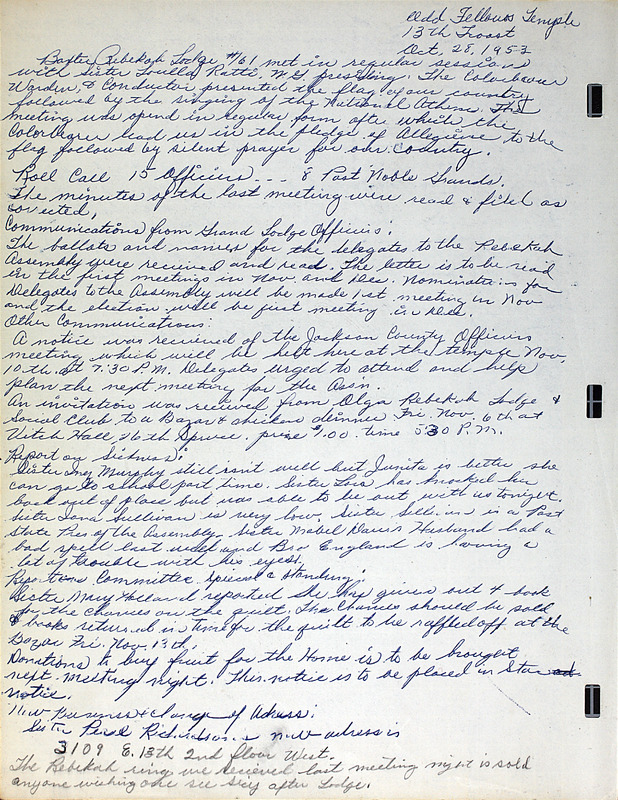 Odd Fellows Temple
13th Troost
Oct. 28, 1953
Baxter Rebekah Lodge #61 met in regular sessions
with Sister Louella Ratté, N.G. presiding. The Colorbearer
Warden, & Conductor presented the flag of our country
followed by the singing of the National Athem. The
meeting was opend in regular form after which the
Colorbearer lead us in the pledge of Allegience to the
flag followed by silent prayer for our Country.
Roll Call 15 Officers - - - 8 Past Noble Grands.
The minutes of the last meeting were read & filed as
corrected,
Communications from Grand Lodge Officers:
The ballots and names for the delegates to the Rebekah
Assembly were recieved and read. The letter is to be read
in the first meetings in Nov. and Dec. Nominations for
Delegates to the Assembly will be made 1st meeting in Nov
and the election will be first meeting in Dec.
Other Communications:
A notice was recieved of the Jackson County Officers
meeting which will be held here at the temple Nov.
10th at 7:30 P.M. Delegates urged to attend and help
plan the next meeting for the Assn.
An invitation was received from Olga Rebekah Lodge &
Social Club to a Bazar & chicken dinner Fri. Nov. 6th at
Hall, 26th Spruce. price $1.00. time 5:30 P.M.
Report on Sickness:
Sister Inez Murphy still isn't well but Junita is better she
can go to school part time. Sister Lois has knocked her
back out of place but was able to be out with us tonight.
Sister Iona Sullivan is very low. Sister Sullivan is a Past
State Pres of the Assembly. Sister Mabel Davis Husband had a
bad spell last week and Bro England is having a
lot of trouble with his eyes.
Reports Committee, Special & Standing:
Sister Mary Holland reported she has given out 4 books
for the chances on the quilt. The Chances should be sold
& books returned in time for the quilt to be raffled off at the
Bazar Fri. Nov. 13th.
Donations to buy fruit for the Home is to be brought
next meeting night. This notice is to be placed in Star
notice.
New Business & change of Adress:
Sister Pearl Richardson's new adress is
3109 E. 13th 2nd floor West.
The Rebekah ring we recieved last meeting night is sold
anyone wishing one see Secy after Lodge.